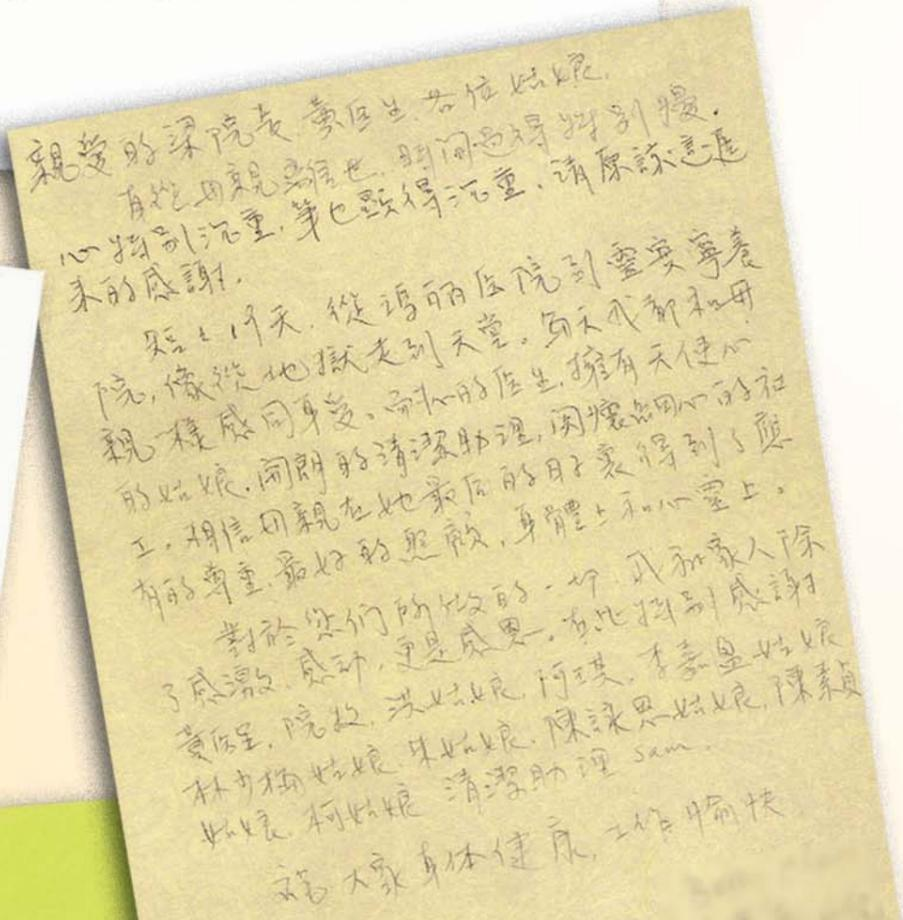 親愛的梁院長、黃医生、各位姑娘,
自從母親離世,時間過得特別慢。
心特別沉重,筆也顯得沉重,請原諒這遲
來的感謝。
短短19天,從瑪麗医院到靈實寧養
院,像從地獄走到天堂。每天我都和母
親一樣感同身受。耐心的医生,擁有天使心
的姑娘,開朗的清潔助理,関懷細心的社
工。相信母親在她最后的日子裏得到了應
有的尊重,最好的照顧,身體上和心靈上。
對於您們所做的一切,我和家人除
了感激、感動,更是感恩。在此特別感謝
黃医生,院牧,洪姑娘,阿琪,李嘉盈姑娘
林少梅姑娘,朱姑娘,陳詠恩姑娘,陳素貞
姑娘,柯姑娘 清潔助理 Sam.
祝大家身体健康,工作愉快